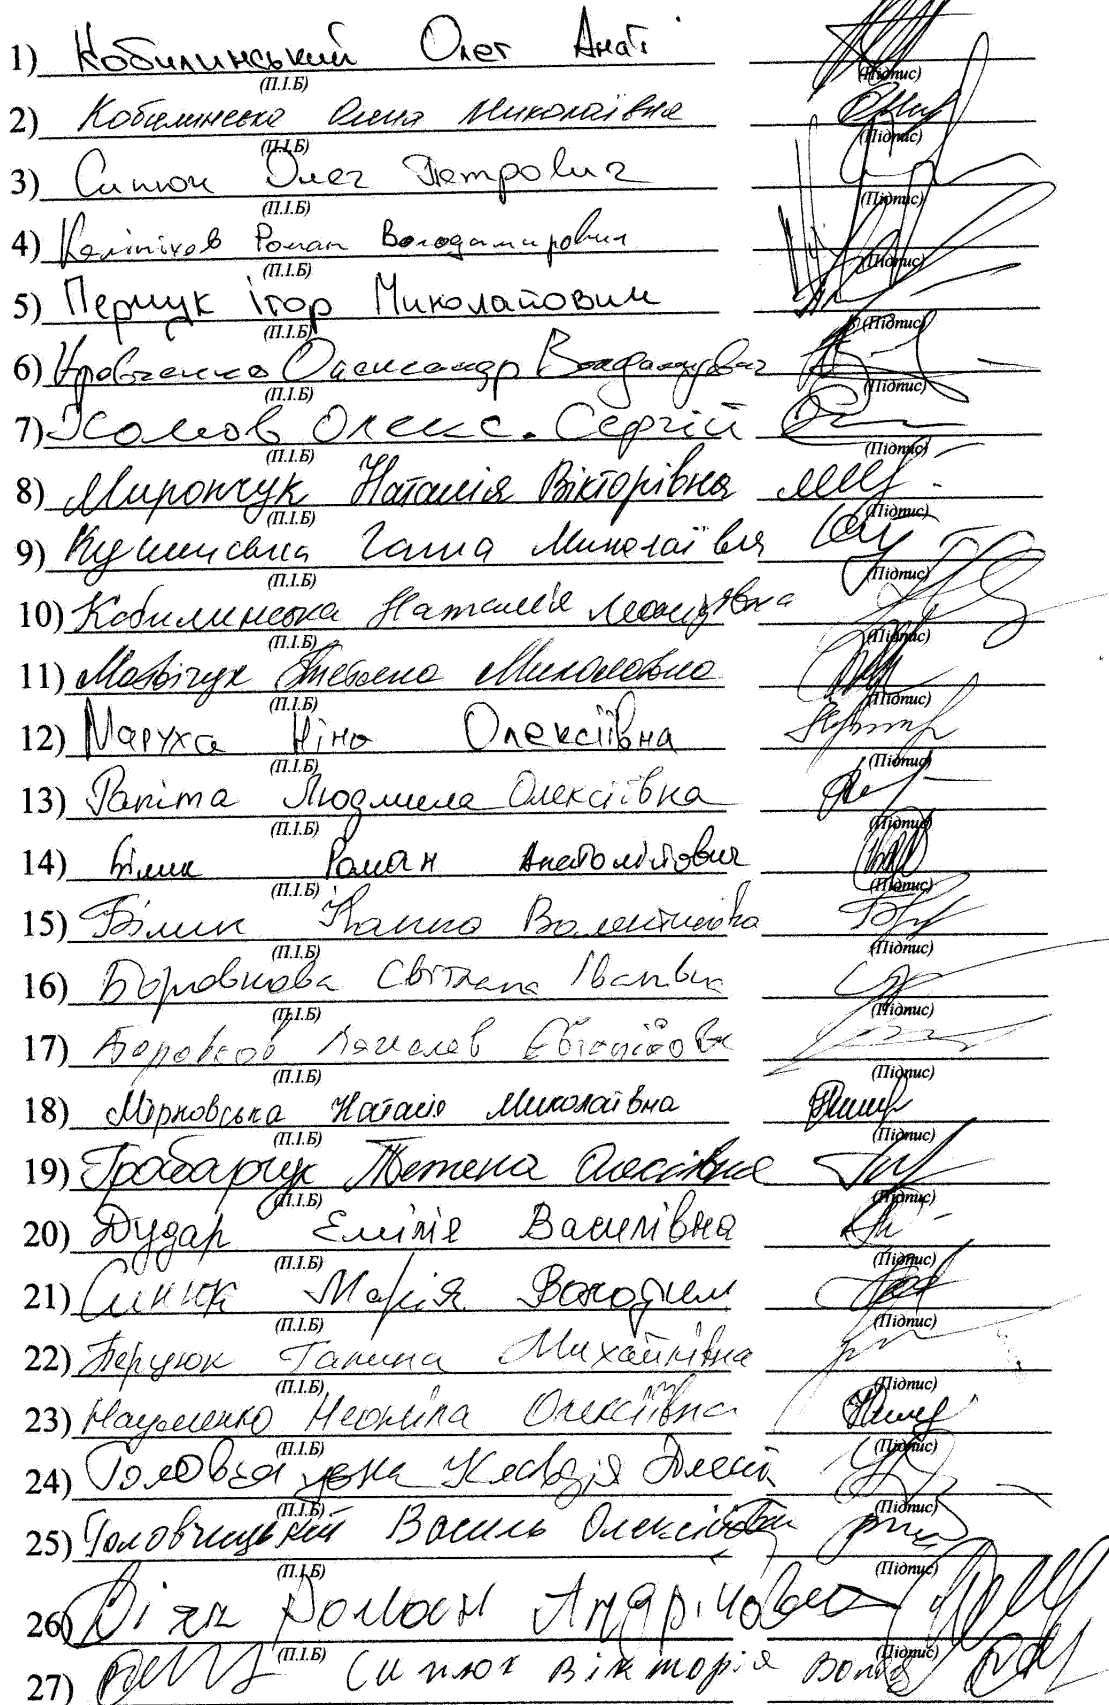 1) Кобилинський Олег Анат
(П.І.Б) (Підпис)
2) Кобилинська Олена Миколаївна
(П.І.Б) (Підпис)
3) Синюк Олег Петрович
(П.І.Б) (Підпис)
4) Роман Володимирович
(П.І.Б) (Підпис)
5) Перчук Ігор Миколайович
(П.І.Б) (Підпис)
6) Кравченко Олександр
(П.І.Б) (Підпис)
7) Холов Олекс. Сергій
(П.І.Б) (Підпис)
8) Мирончук Наталія Вікторівна
(П.І.Б) (Підпис)
9) Галина Миколаївна
(П.І.Б) (Підпис)
10) Кобилинська Наталія Леонідівна
(П.І.Б) (Підпис)
11) Матвійчук Тетяна Миколаївна
(П.І.Б) (Підпис)
12) Маруха Ніна Олексіївна
(П.І.Б) (Підпис)
13) Папіта Людмила Олексіївна
(П.І.Б) (Підпис)
14) Білик Роман Анатолійович
(П.І.Б) (Підпис)
15) Білик Жанна Валентинівна
(П.І.Б) (Підпис)
16) Боровкова Світлана Іванівна
(П.І.Б) (Підпис)
17) Боровков
(П.І.Б) (Підпис)
18) Мірковська Наталія Миколаївна
(П.І.Б) (Підпис)
19) Грабарчук Тетяна Олексіївна
(П.І.Б) (Підпис)
20) Дудар Емілія Василівна
(П.І.Б) (Підпис)
21) Синюк Марія Володим
(П.І.Б) (Підпис)
22) Галина Михайлівна
(П.І.Б) (Підпис)
23) Науменко Неоніла Олексіївна
(П.І.Б) (Підпис)
24) Клавдія Олекс
(П.І.Б) (Підпис)
25) Головчицький Василь Олексійович
(П.І.Б) (Підпис)
26) Роман
(П.І.Б) (Підпис)
27) Синюк Вікторія